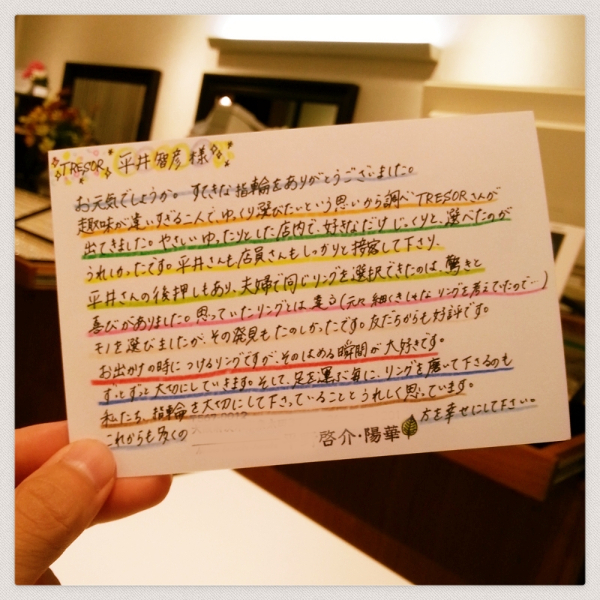 TRESOR 平井智彦様
お元気でしょうか。すてきな指輪をありがとうございました。
趣味が違いすぎる二人で、ゆっくり選びたいという思いから調べTRESORさんが
出てきました。やさしいゆったりとした店内で、好きなだけじっくりと、選べたのが
うれしかったです。平井さんも店員さんもしっかりと接客して下さり、
平井さんの後押しもあり、夫婦で同じリングを選択できたのは、驚きと
喜びがありました。思っていたリングとは違う(元々細くきしゃなリングを考えていたので…)
モノを選びましたが、その発見もたのしかったです。友だちからも好評です。
お出かけの時につけるリングですが、そのはめる瞬間が大好きです。
ずっとずっと大切にしていきます。そして、足を運ぶ毎に、リングを磨いて下さるのも
私たち、指輪を大切にして下さっていることとうれしく思っています。
これからも多くの
方を幸せにして下さい。
啓介・陽華